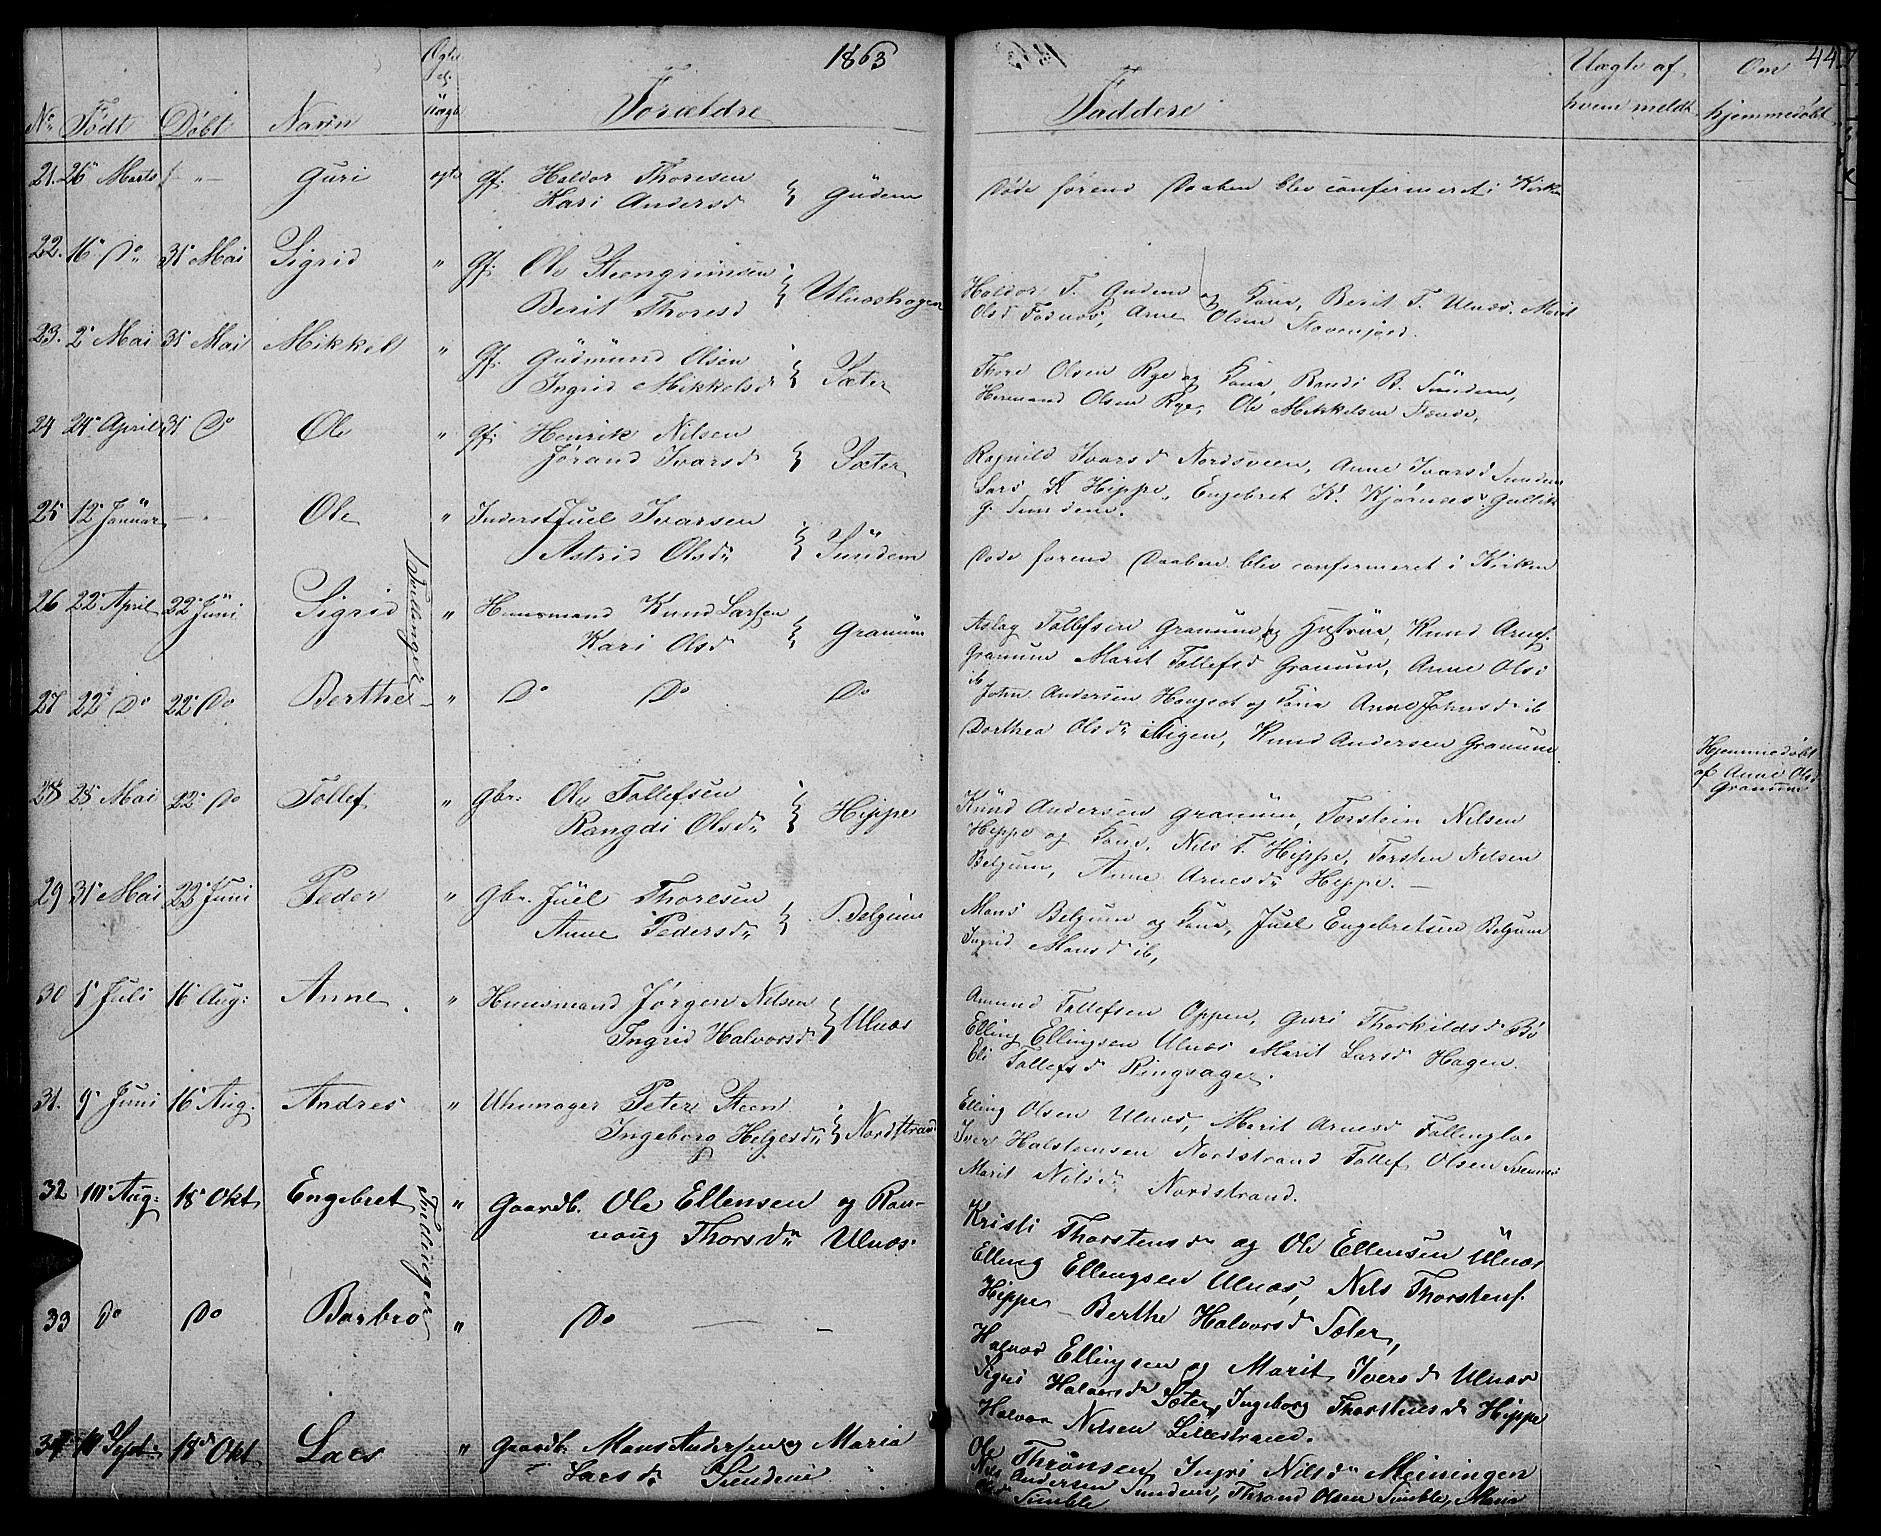 1863
44
No Født Døbt Navn Ægte el. uægte Forældre
Faddere Uægte af hvem meldt Om hjemmedøbt
21. 26 Marts Guri ægte gf: Haldor Thoresen
Kari Andersd Gudem
Døde førend Daaben blev confirmeret i Kirken
22. 16 Do 31 Mai Sigrid " gf: Ole Steengrimsen
Berit Thoresd Ulnæshagen
Haldor T. Gudem og Kone, Berit T. Ulnæs. Marit
Olsd Fodnæs, Arne Olsen
23. 2 Mai 31 Mai Mikkel " gf: Gudmund Olsen
Ingrid Mikkelsd Sæter
Thore Olsen Rye og Kone, Randi B. Sundem,
Hermand Olsen Rye, Ole Mikkelsen
24 24 April 31 Do Ole " gf: Henrik Nilsen
Jørand Ivarsd Sæter
Ragnild Ivarsd Nordsveen, Anne Ivarsd Sundem
Lars K Hippe, Engebret K. Kjørnæs, Gullik
G. Sundem.
25 12 Januar Ole " Inderst Juel Ivarsen
Astrid Olsd Sundem
Døde førend Daaben blev confirmeret i Kirken
Tvillinger
26 22 April 22 Juni Sigrid " Huusmand Knud Larsen
Kari Olsd Granum
Aslag Tollefsen Granum og Hustrue, Knud Arnes.
Granum Marit Tollefsd Granum, Anne Olsd
ib
27 22 Do 22 Do Berthe " Do Do Do
John Andersen Haugsrt og Kone Anne Johnsd ib
Dorthea Olsd Migen, Knud Andersen Granum
Hjemmedøbt
af Anne Olsd
Granum
28 25 Mai 22 Do Tollef " gbr. Ole Tollefsen
Rangdi Olsd Hippe
Knud Andersen Granum, Torstein Nilsen
Hippe og Kone, Nils T. Hippe, Torsten Nilsen
Belgum, Anne Arnesd Hippe.
29 31 Mai 22 Juni Peder " gbr. Juel Thoresen
Anne Pedersd Belgum
Mons Belgum og Kone, Juel Engebretsen Belgum
Ingrid Monsd ib,
30 1 Juli 16 Aug: Anne " Huusmand Jørgen Nilsen
Ingrid Halvorsd Ulnæs
Amund Tollefsen Oppen, Guri Thorkildsd Bø
Elling Ellingsen Ulnæs Marit Larsd Hagen.
Eli Tollefsd Ringsager.
31. 9 Juni 16 Aug. Andres " Uhrmager Peter Steen
Ingeborg Helgesd Nordstrand
Elling Olsen Ulnæs, Marit Arnesd Tollingløs
Iver Halstensen Nordstrand Tollef Olsen Svennes
Marit Nilsd Nordstrand.
Tvillinger
32 10 Aug: 18 Okt Engebret " Gaardb. Ole Ellensen og Ran-
naug Thorsd Ulnæs
Kristi Thorstensd og Ole Ellensen Ulnæs
Elling Ellingsen Ulnæs, Nils Thorstens.
Hippe Berthe Halvorsd Sæter,
33 Do Do Barbro " Do
Halvor Ellingsen og Marit Iversd Ulnæs
Signi Halvorsd Sæter, Ingeborg Thorstensd Hippe
Halvor Nilsen Lillestrand.
34 10 Sept: 18 Okt Lars " Gaardb. Mons Andersen og Maria
Larsd Sundem
Ole Thrönsen, Ingri Nilsd Meiningen
Nils Andersen Sundem, Thrond Olsen Semble, Maria
Olsd Semble